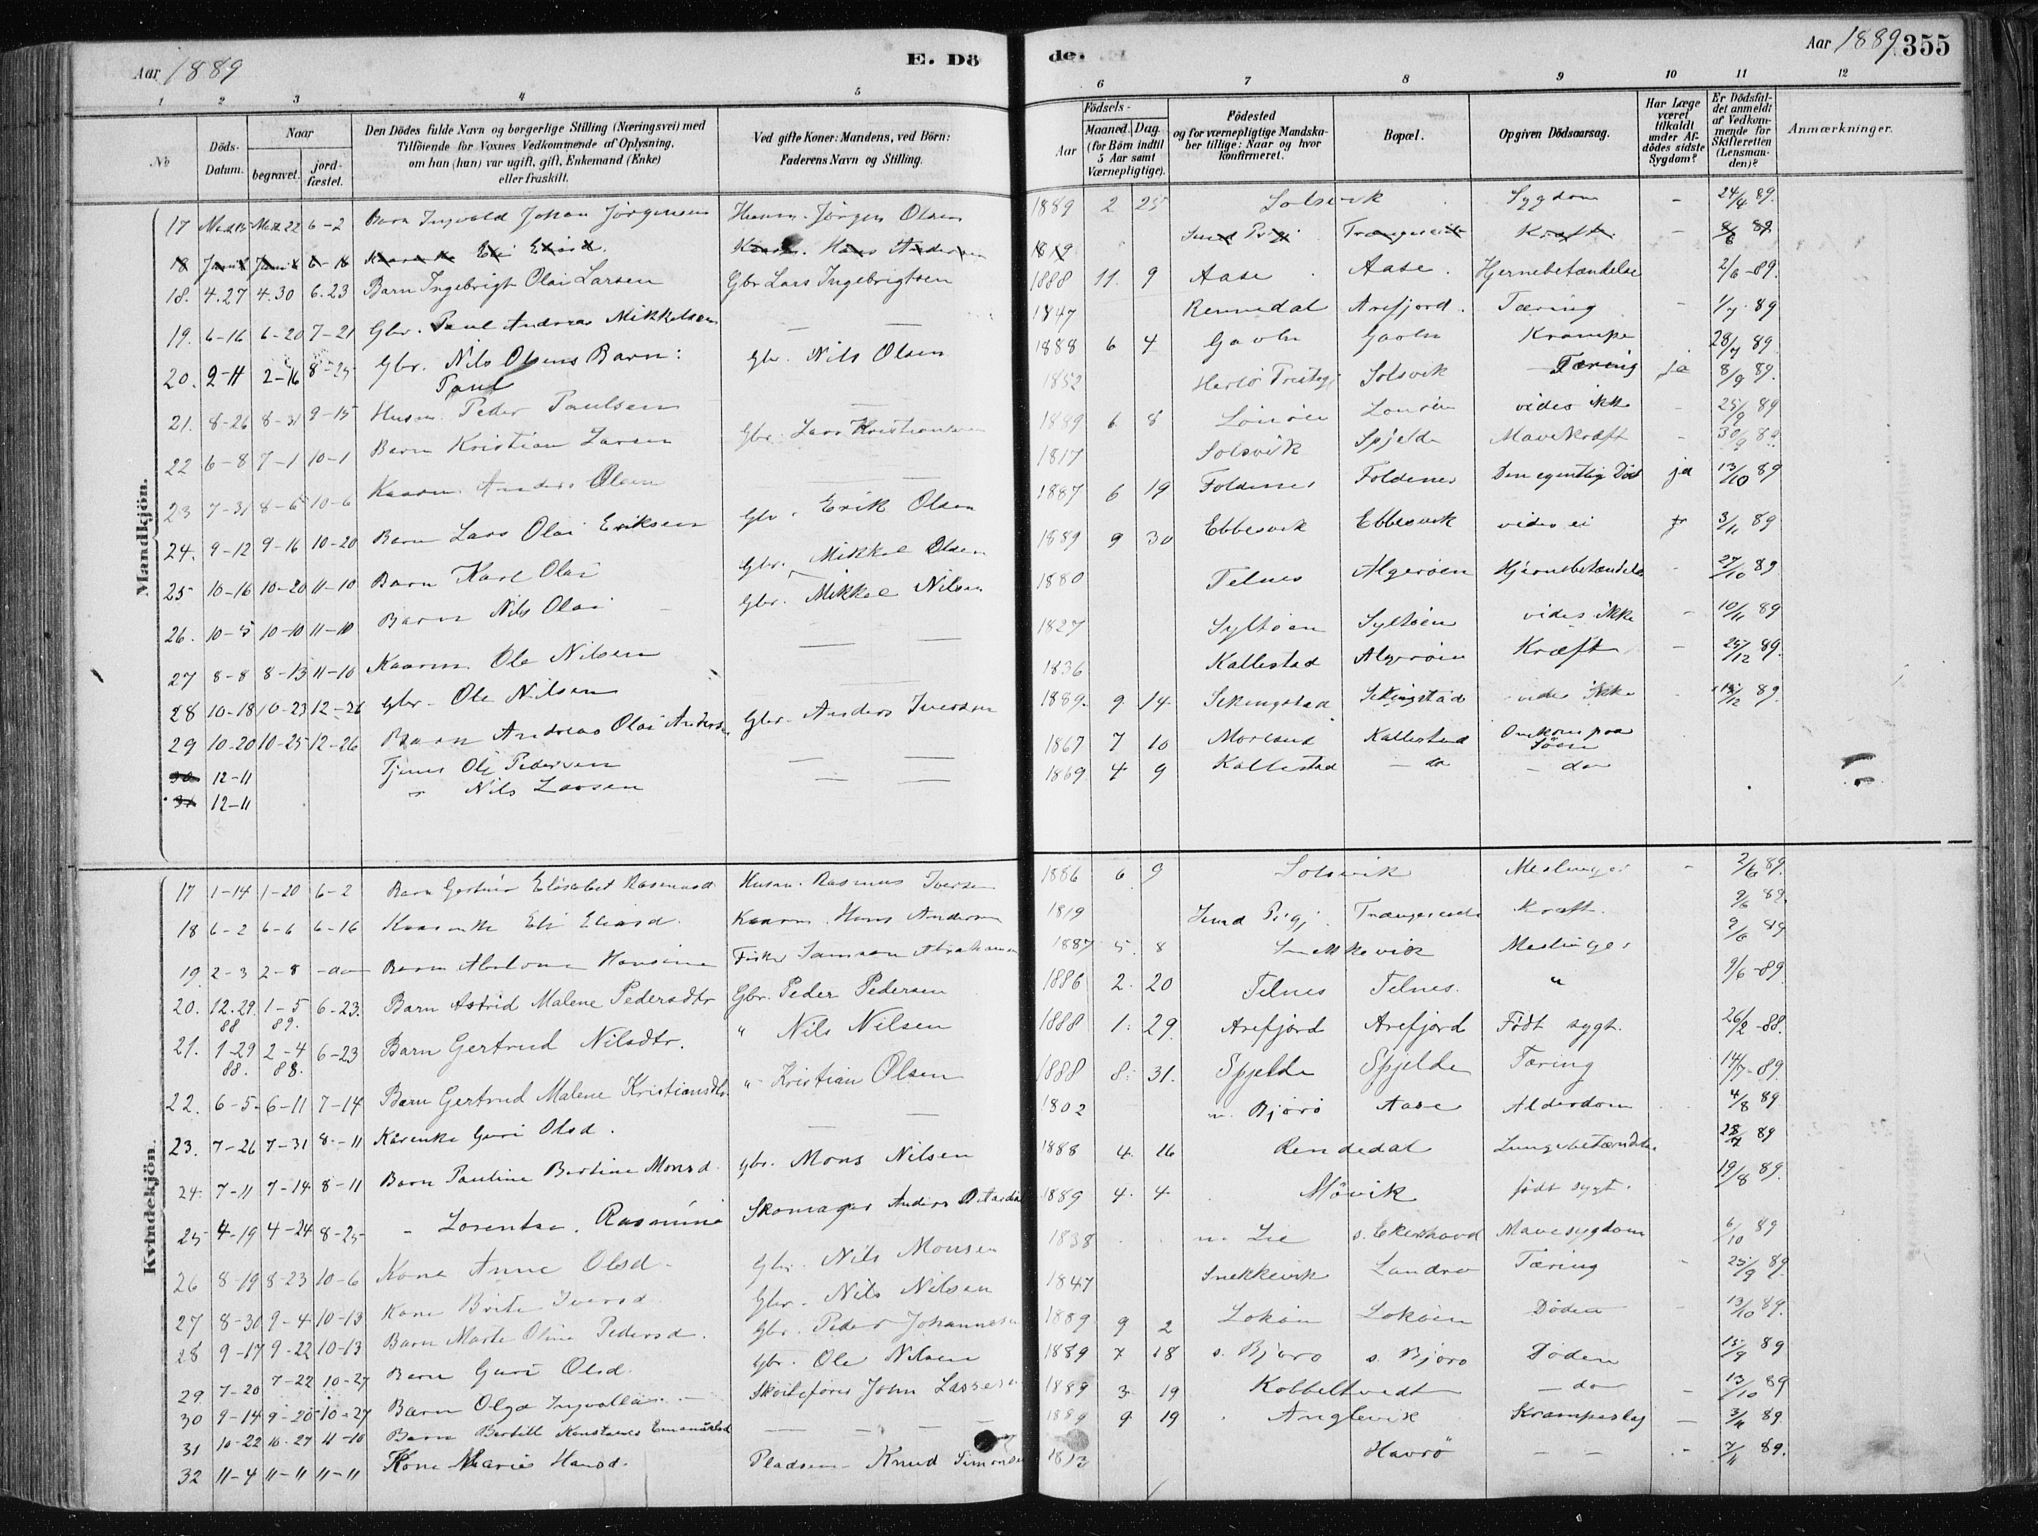 Aar 1889
E. Dö
de.
Aar 1889 355
1 2 3 4 5 6 7 8 9 10 11 12
No
Döds-Datum.
Naar
begravet.
jord-fæstet.
Den Dödes fulde Navn og borgerlige Stilling (Næringsvei) med
Tilföiende for Voxnes Vedkommende af Oplysning,
om han (hun) var ugift, gift, Enkemand (Enke)
eller fraskilt.
Ved gifte Koner: Mandens, ved Börn:
Faderens Navn og Stilling.
Födsels-
Aar
Maaned. Dag.
(for Börn indtil
5 Aar samt
Værnepligtige).
Födested
og for værnepligtige Mandska-
ber tillige: Naar og hvor
konfirmeret.
Bopæl.
Opgiven Dödsaarsag.
Har Læge
været
tilkaldt
under Af-
dödes sidste
Sygdom?
Er Dödsfal-
det anmeldt
af Vedkom-
mende for
Skifteretten
(Lensman-
den)?
Anmærkninger.
Mandkjön.
17 22 6-2 Barn Ingvald Johan Jörgensen Husm. Jörgen Olsen 1889 2 25 Solsvik Sygdom - 24/4 89.
18 Eli Eliasd. Hans Andersen 1819 Sund Trængereid Kræft 89
18. 4.27 4.30 6.23 Barn Ingebrigt Olai Larsen Gbr Lars Ingebrigtsen 1888 11. 9 Aase Aase Hjernebetændelse 2/6-89.
19. 6-16 6-20 7-21 Gbr. Paul Andreas Mikkelsen — — 1847 Rennedal Arefjord. Tæring - 1/7-89
20. 2-11 2-16 8-25 Gbr. Nils Olsens Barn: Paul Gbr. Nils Olsen 1888 6 4 Gavln Gavln Krampe 28/7 89.
21. 8-26 8-31 9-15 Husm. Peder Paulsen — 1852 Solsvik Tæring ja 8/9 89.
22 6-8 7-1 10-1 Barn Kristian Larsen Gbr. Lars Kristiansen 1889 6 8 Lönöen Lonöen vides ikke - 25/9 89
23 7-31 8-5 10-6 Kaarm. Anders Olsen — 1817 Solsvik Spjelde Mavekræft - 30/9 89.
24. 9-12 9-16 10-20 Barn Lars Olai Eriksen Gbr. Erik Olsen 1887 6 19 Foldenes Foldenes Den egentlig Död ja 13/10 89
25 10-16 10-20 11-10 Barn Karl Olai Gbr. Mikkel Olsen 1889 9 30 Ebbesvik Ebbesvik vides ei 3/11 89
26. 10-5 10-10 11-10 Barn Nils Olai Gbr. Mikkel Nilsen 1880 Telnes Algeröen Hjernebetændelse - 27/10 89
27 8-8 8-13 11-10 Kaarm. Ole Nilsen — — 1827 Syltöen Syltöen vides ikke - 10/11 89
28 10-18 10-23 12-26 Gbr. Ole Nilsen — 1836 Kallestad Algeröen Kræft - 25/12 89.
29 10-20 10-25 12-26 Barn Andreas Olai Andersen Gbr. Anders Iversen 1889. 9 14. Sekingstad Sekingstad vides ikke - 12 89.
30 12-11 Tjener Ole Pedersen — — 1867 7 10 Morlsund Kallestad Omkom paa Söen
31 12-11 " Nils Larsen — — 1869 4 9 Kallestad - do - do
Kvindekjön.
17 1-14 1-20 6-2 Barn Gertine Elisabet Rasmusd. Husm. Rasmus Iversen 1886 6 9 Solsvik Meslinger - 2/6 89.
18 6-2 6-6 6-16 Eli Eliasd. Kaarm. Hans Andersen 1819 Sund Prgj. Trængereid Kræft. 9/6 89.
19. 2-3 2-8 -do- Barn Hansine Fisker Samson Abrahamsen 1887 5. 8 Snekkevik Meslinger 9/6 89
20. 12.29 88 1-5 89. 6-23. Barn Astrid Malene Pedersdtr Gbr. Peder Pedersen 1886 2. 20 Telnes Telnes. " 9/6-89.
21. 1-29 88. 2-4 88. 6-23 Barn Gertrud Nilsdtr. " Nils Nilsen 1888 1. 29. Arefjord Arefjord Födt sygt. 26/2-88.
22. 6-5- 6-11 7-14 Barn Gertrud Malene Kristiansdtr. " Kristian Olsen 1888 8. 31. Spjelde Spjelde Tæring 14/7-89.
23. 7-26 7-31 8-11 Kårenke Guri Olsd. — 1802 n. Björö Aase Alderdom 4/8 89
24. 7-11 7-14 8-11 Barn Pauline Bertine Monsd. Gbr. Mons Nilsen 1888 4. 16 Rendedal Lungebetændelse 28/7 89
25 4-19 4-24 8-25 " Lorentse Rasmine Skomager Anders 1889 4. 4 Mövik födt sygt. 19/8 89.
26 8-19 8-23 10-6 Kone Anne Olsd. Gbr. Nils Monsen 1838 n. Lie s. Ekerhovd Mavesygdom 6/10 89
27 8-30 9-4 10-13 Kone Brite Iversd. Gbr. Nils Nilsen 1847 Snekkevik Landro Tæring 25/9 89.
28 9-17 9-22 10-13 Barn Marte Oline Pedersd. Gbr. Peder Johannesen 1889 9 2 Loköen Loköen Döden 13/10 89.
29 7-20 7-22 10-27 Barn Guri Olsd. Gbr. Ole Nilsen 1889 7 18 s. Björo s. Björo Döden 15/9 89
30 9-14 9-20 10-27 Barn Olga Ingvalla John Lassesen 1889 3. 19 Kobbeltvedt - do 13/10 89
31 10-22 10-27 11-10 Barn Bertill Konstanse — — 1889 9. 19 Anglevik Krampeslag - 3/11 89.
32 11-4 11-11 11-11 Kone Marie Hansd. Pladsm. Knud Simonsen 1813 Havrö — — 7/11 89.